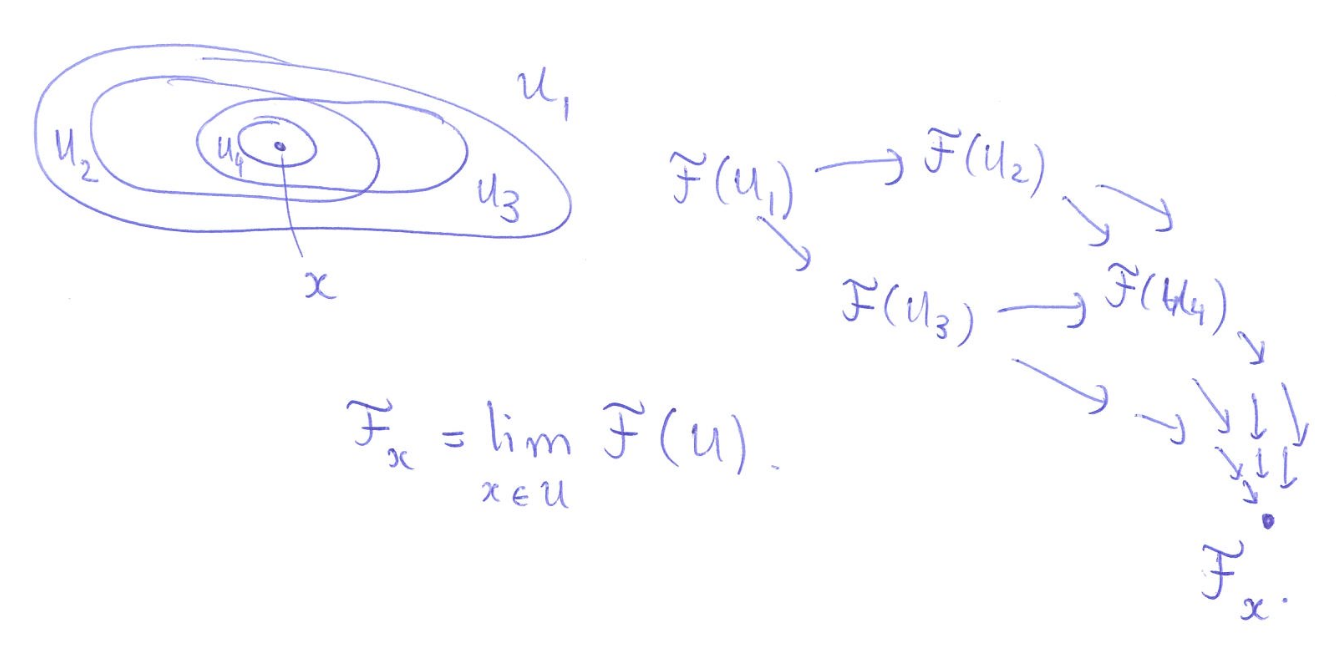 U₁
U₂
U₄
U₃
x
F(U₁) → F(U₂)
F(U₃) → F(U₄)
F_x = lim F(U).
x ∈ U
F_x.